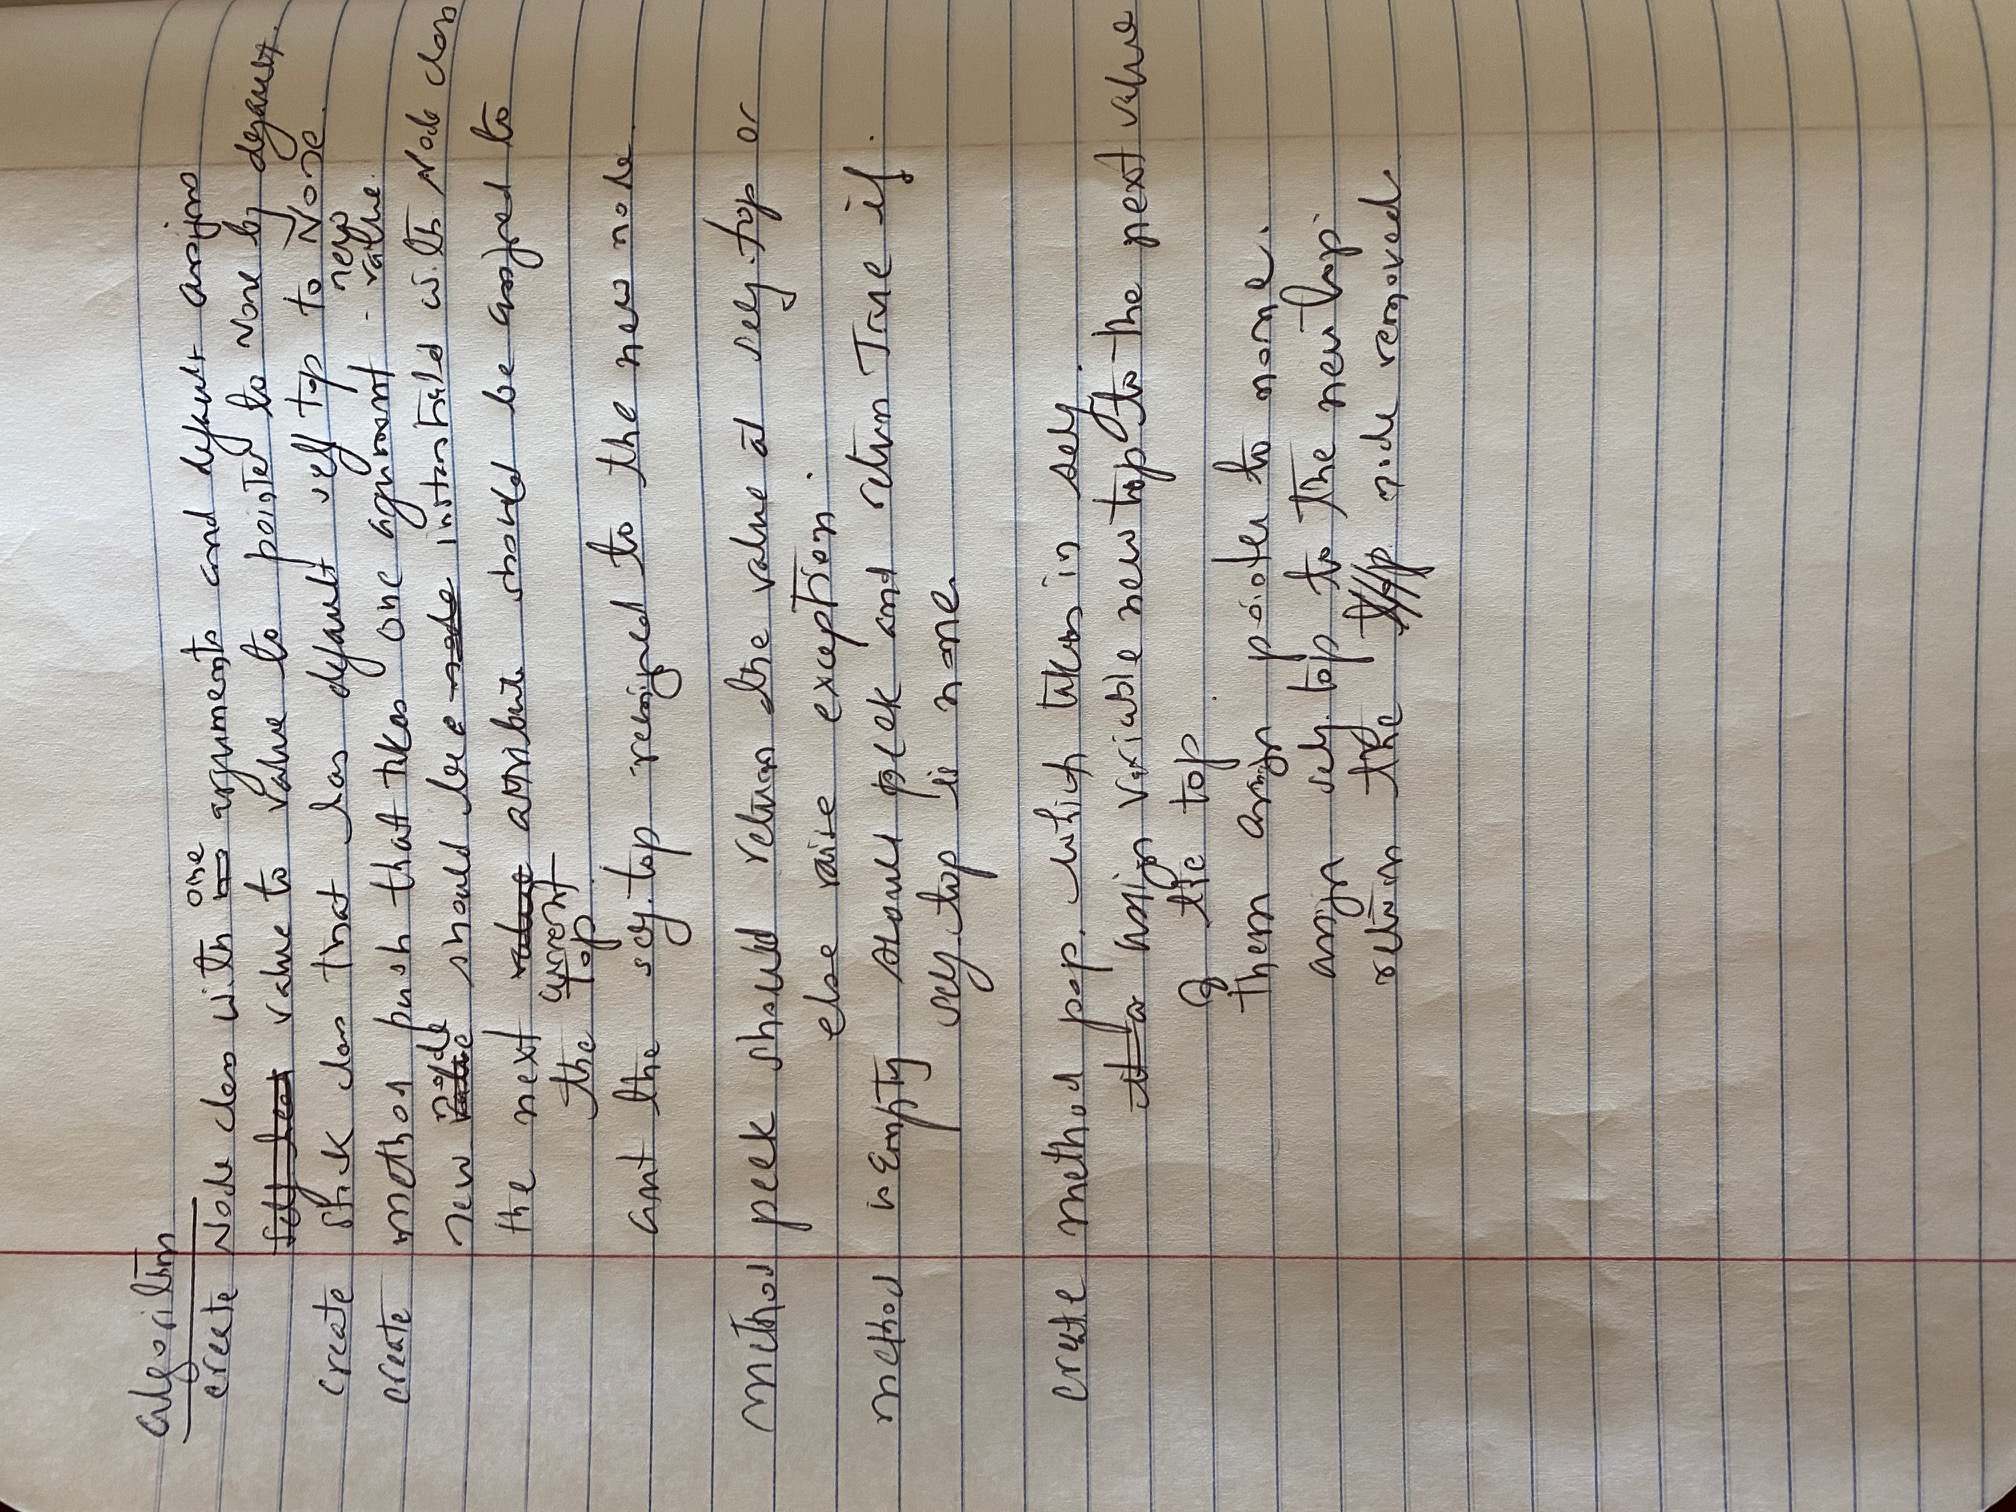 algorithm
create Node class with one arguments and default assigns
value to value to pointer to None by default.
create stack class that has default self top to None.
create method push that takes one agument - new value.
new node should be a instantiated with Node class
the next attribute should be assigned to
the current top.
and the self.top reassigned to the new node
method peek should return the value at self.top or
else raise exception.
method is Empty should peek and return True if.
self.top is none.
create method pop. which takes in self.
assign variable new top to the next value
of the top.
then assign pointer to none.
assign self.top to the new top.
return the node removed.